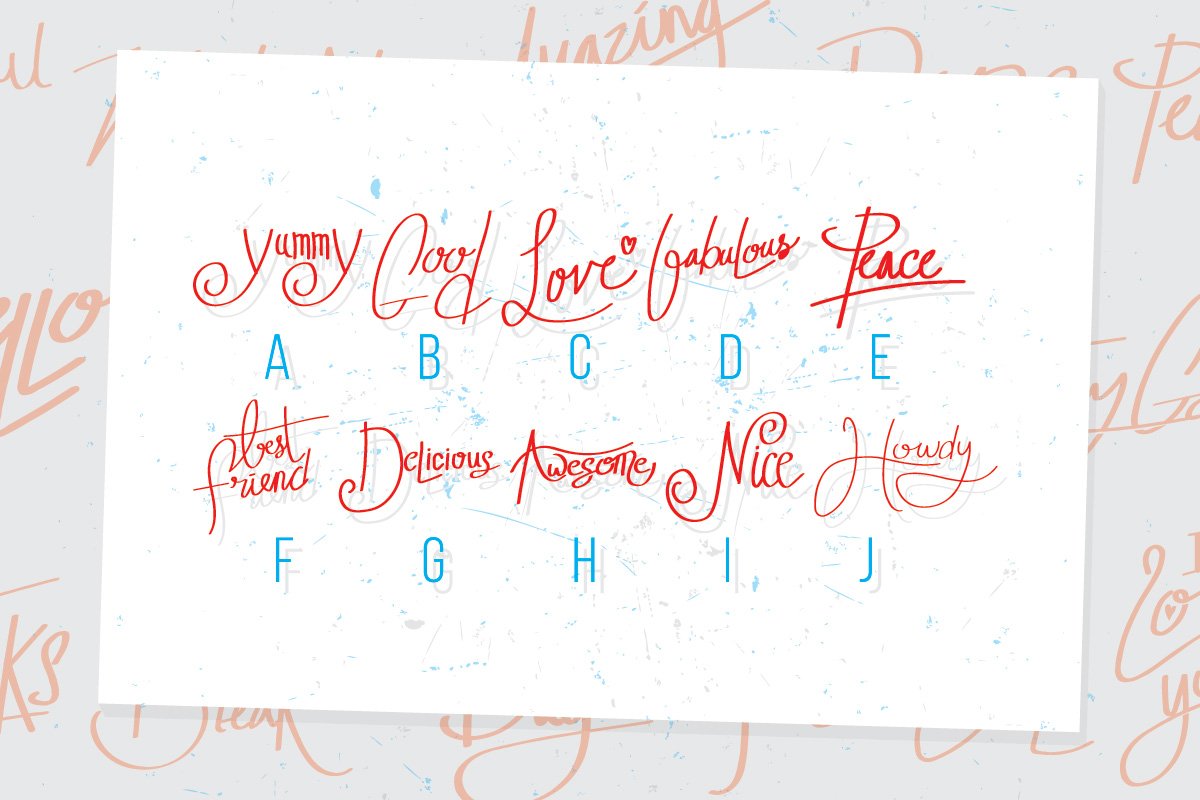 Amazing
yummy Good Love fabulous Peace
A B C D E
best
friend Delicious Awesome Nice Howdy
F G H I J